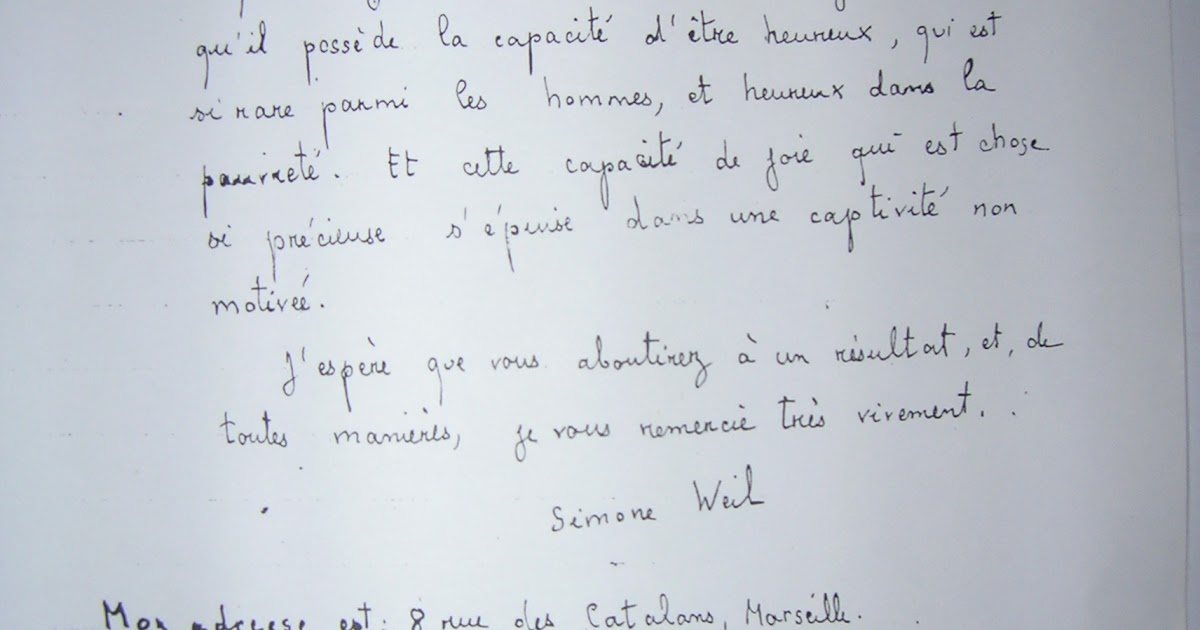 qu'il possède la capacité d'être heureux, qui est
si rare parmi les hommes, et heureux dans la
pauvreté. Et cette capacité de joie qui est chose
si précieuse s'épuise dans une captivité non
motivée.
J'espère que vous aboutirez à un résultat, et, de
toutes manières, je vous remercie très vivement.
Simone Weil
Mon adresse est: 8 rue des Catalans, Marseille.